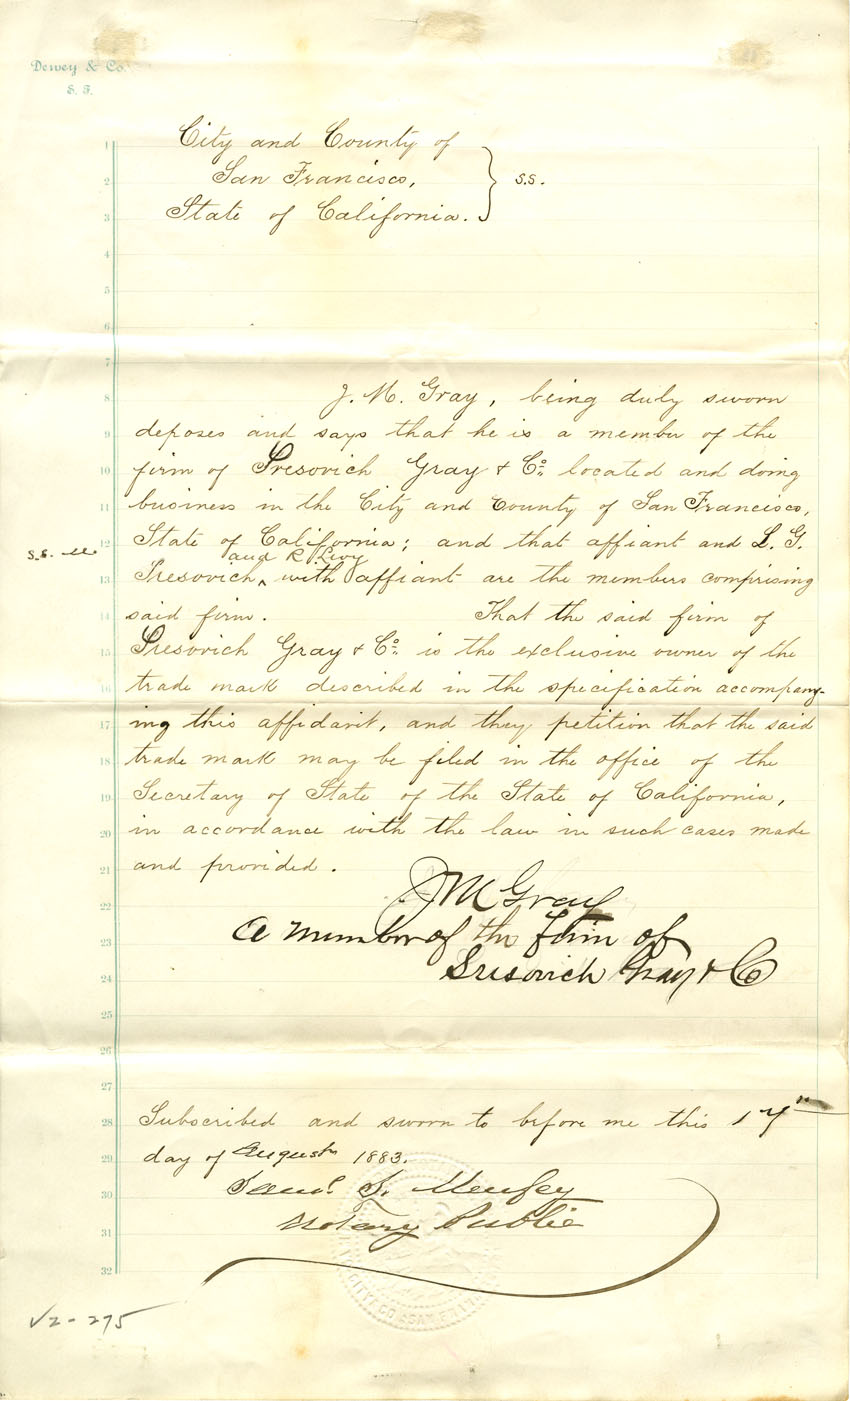 Dewey & Co.
S. F.
City and County of
San Francisco,
State of California. } s.s.
1
2
3
4
5
6
7
8
9
10
11
12
13
14
15
16
17
18
19
20
21
22
23
24
25
26
27
28
29
30
31
32
J. M. Gray, being duly sworn
deposes and says that he is a member of the
firm of Sresovich Gray & Co. located and doing
business in the City and County of San Francisco,
State of California; and that affiant and L. G.
s.s.
and R. Levy
Sresovich ^ with affiant are the members comprising
said firm. That the said firm of
Sresovich Gray & Co. is the exclusive owner of the
trade mark described in the specification accompany-
ing this affidavit, and they petition that the said
trade mark may be filed in the office of the
Secretary of State of the State of California,
in accordance with the law in such cases made
and provided.
J M Gray
a member of the firm of
Sresovich Gray & Co
Subscribed and sworn to before me this 17th
day of August 1883.
Saml. S. Murfey
Notary Public
V2-275